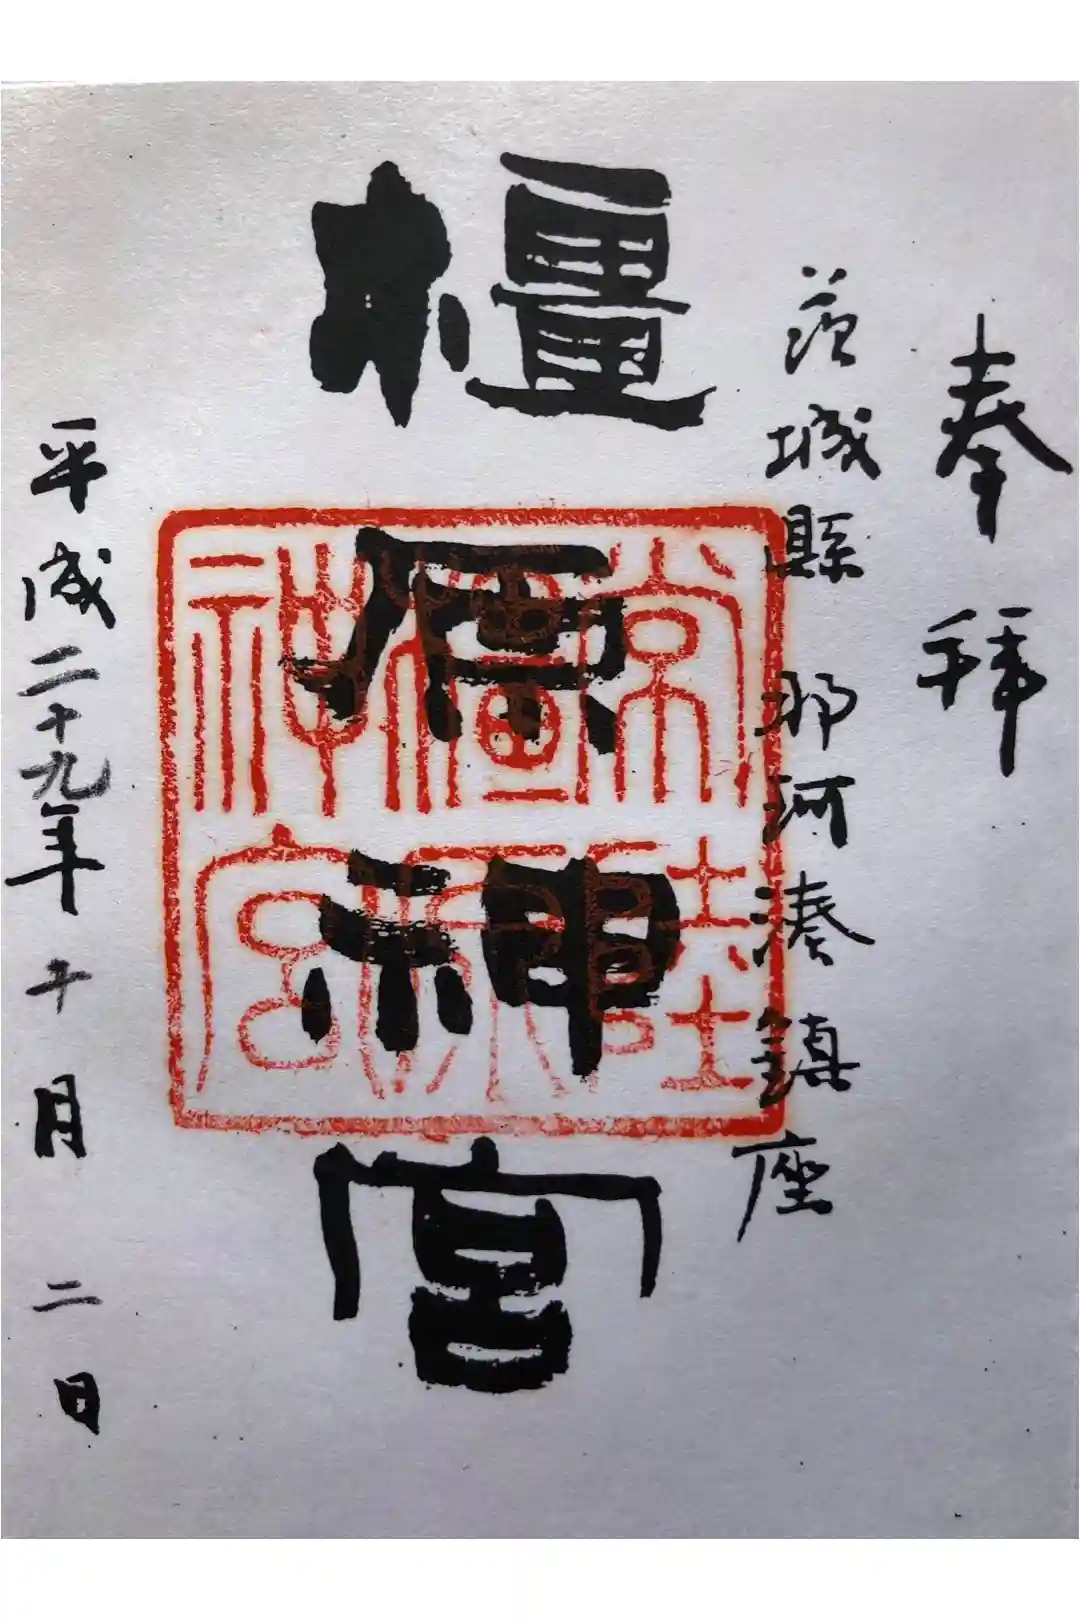 奉拜
茨城縣 那珂湊鎮座
橿原神宮
常陸
橿原
神宮
平成二十九年十月二日